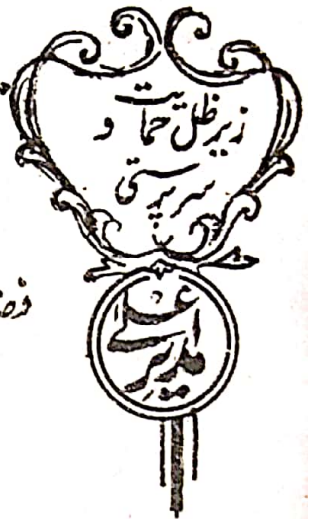 زیر ظل حمایت و
سرپرستی
مدیر اعلےٰ